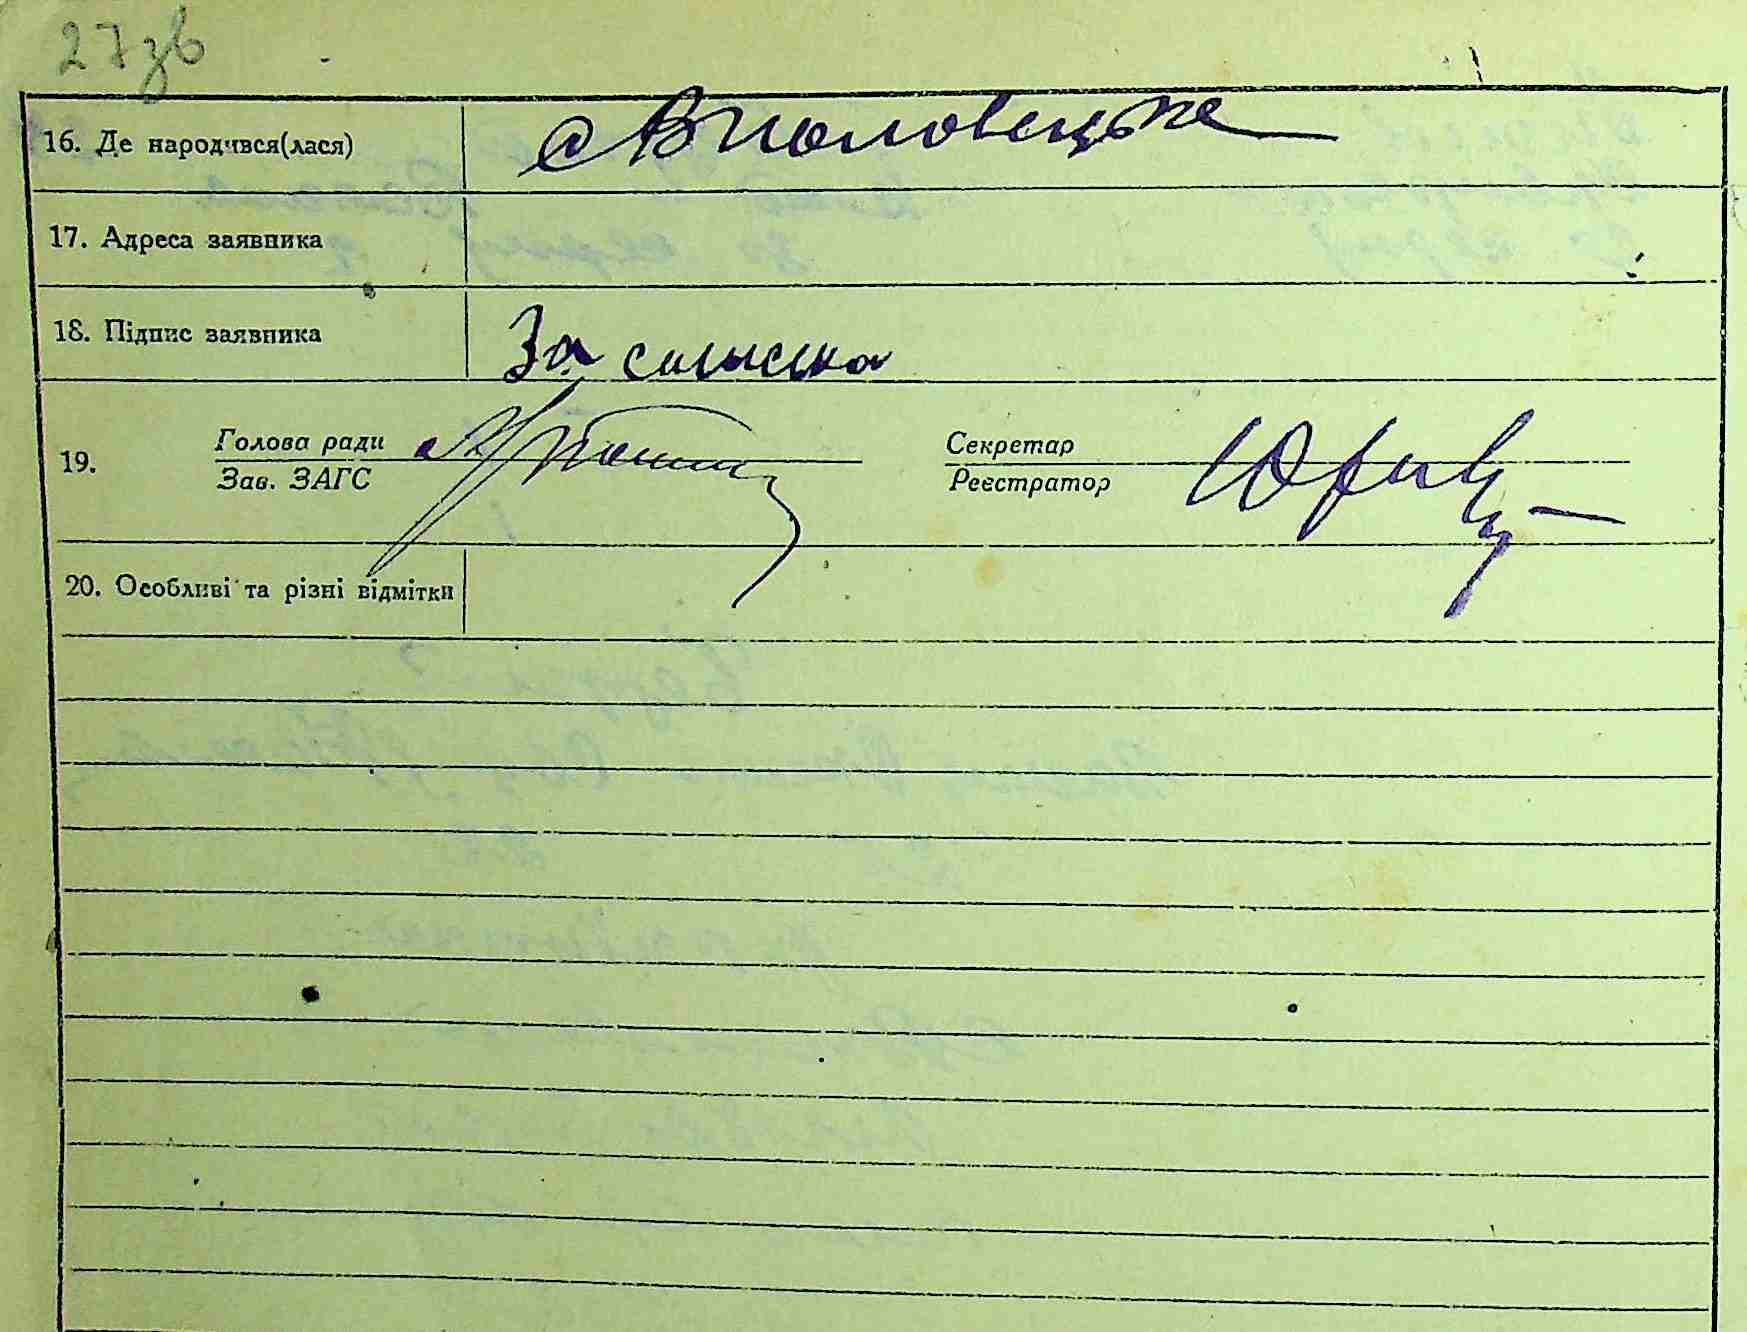 27 зв
16. Де народився(лася) с В половецьке
17. Адреса заявника
18. Підпис заявника За
19. Голова ради Секретар
Зав. ЗАГС Реєстратор
20. Особливі та різні відмітки